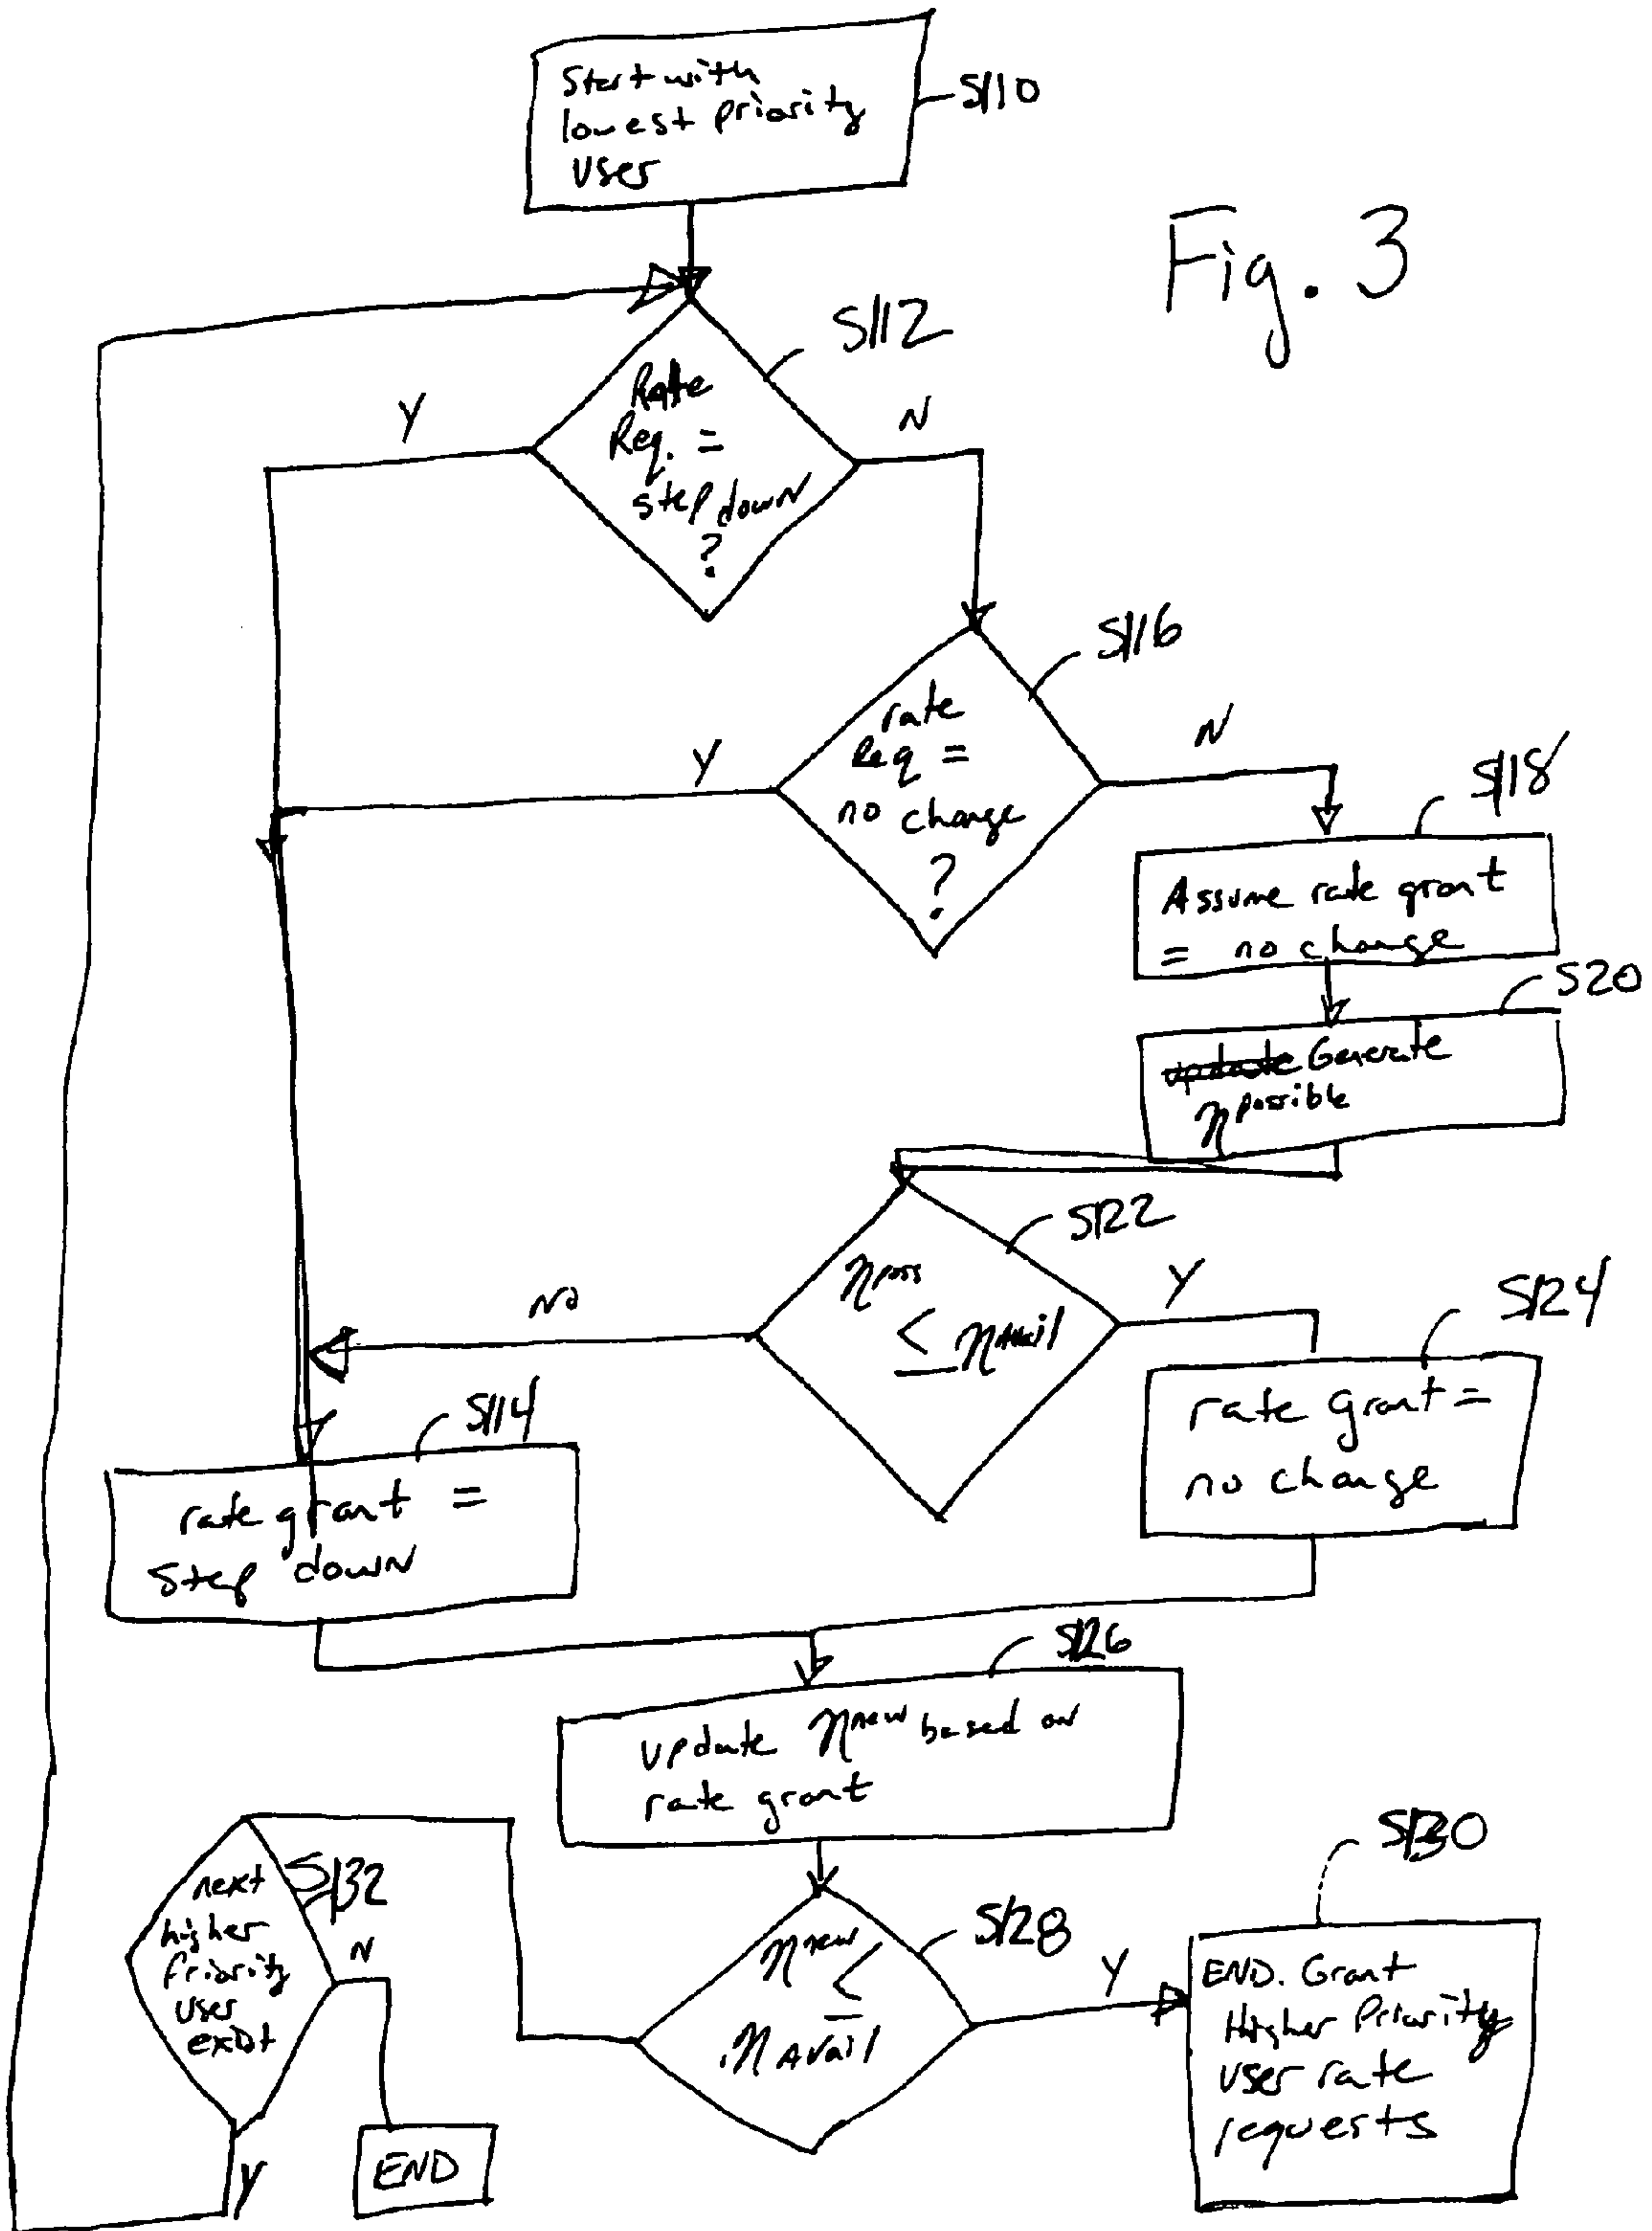 Start with
lowest priority
user
S110
Fig. 3
S112
Rate
Req. =
step down
?
Y
N
S116
rate
Req =
no change
?
Y
N
S118
Assume rate grant
= no change
S20
update Generate
η possible
S122
η poss
≤ η Avail
No
Y
S124
rate grant =
no change
S114
rate grant =
step down
S126
update η new based on
rate grant
S128
η new ≤
η Avail
Y
S130
END. Grant
Higher Priority
user rate
requests
S132
next
higher
priority
user
exist
N
Y
END